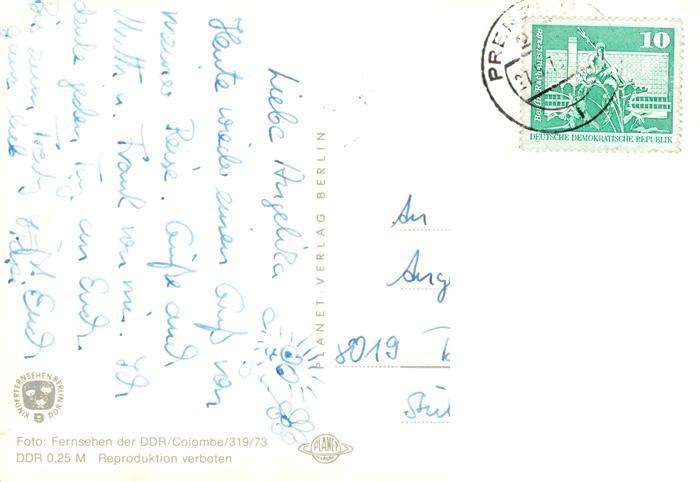 Liebe Angelika
Heute wieder einen Gruß von
meiner Reise. Grüße auch
Mutti u. Frank von mir. Ich
denke jeden Tag an Euch.
Bis zum
PLANET VERLAG BERLIN
An
Ang
8019
PREN
10
Berlin, Rathausstraße
DEUTSCHE DEMOKRATISCHE REPUBLIK
KINDERFERNSEHEN BERLIN DDR
Foto: Fernsehen der DDR/Colombe/319/73
DDR 0,25 M Reproduktion verboten
PLANET